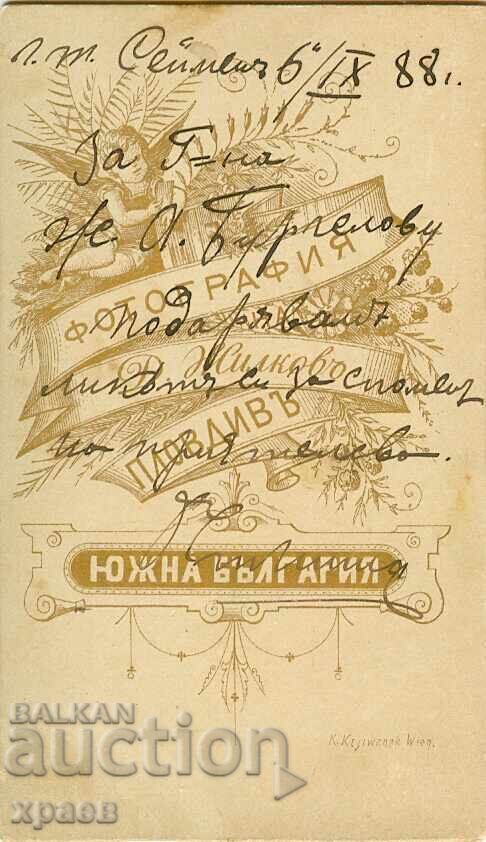 г. т. Сейменъ 6/IX 88 г.
За Г=на
Же А. Бурнелову
ФОТОГРАФИЯ
подарявамъ
Д. Жилковъ
ликътъ си за споменъ
ПЛОВДИВЪ
на приятелство.
ЮЖНА БЪЛГАРИЯ
K. Krziwanek Wien.
BALKAN
auction
храев